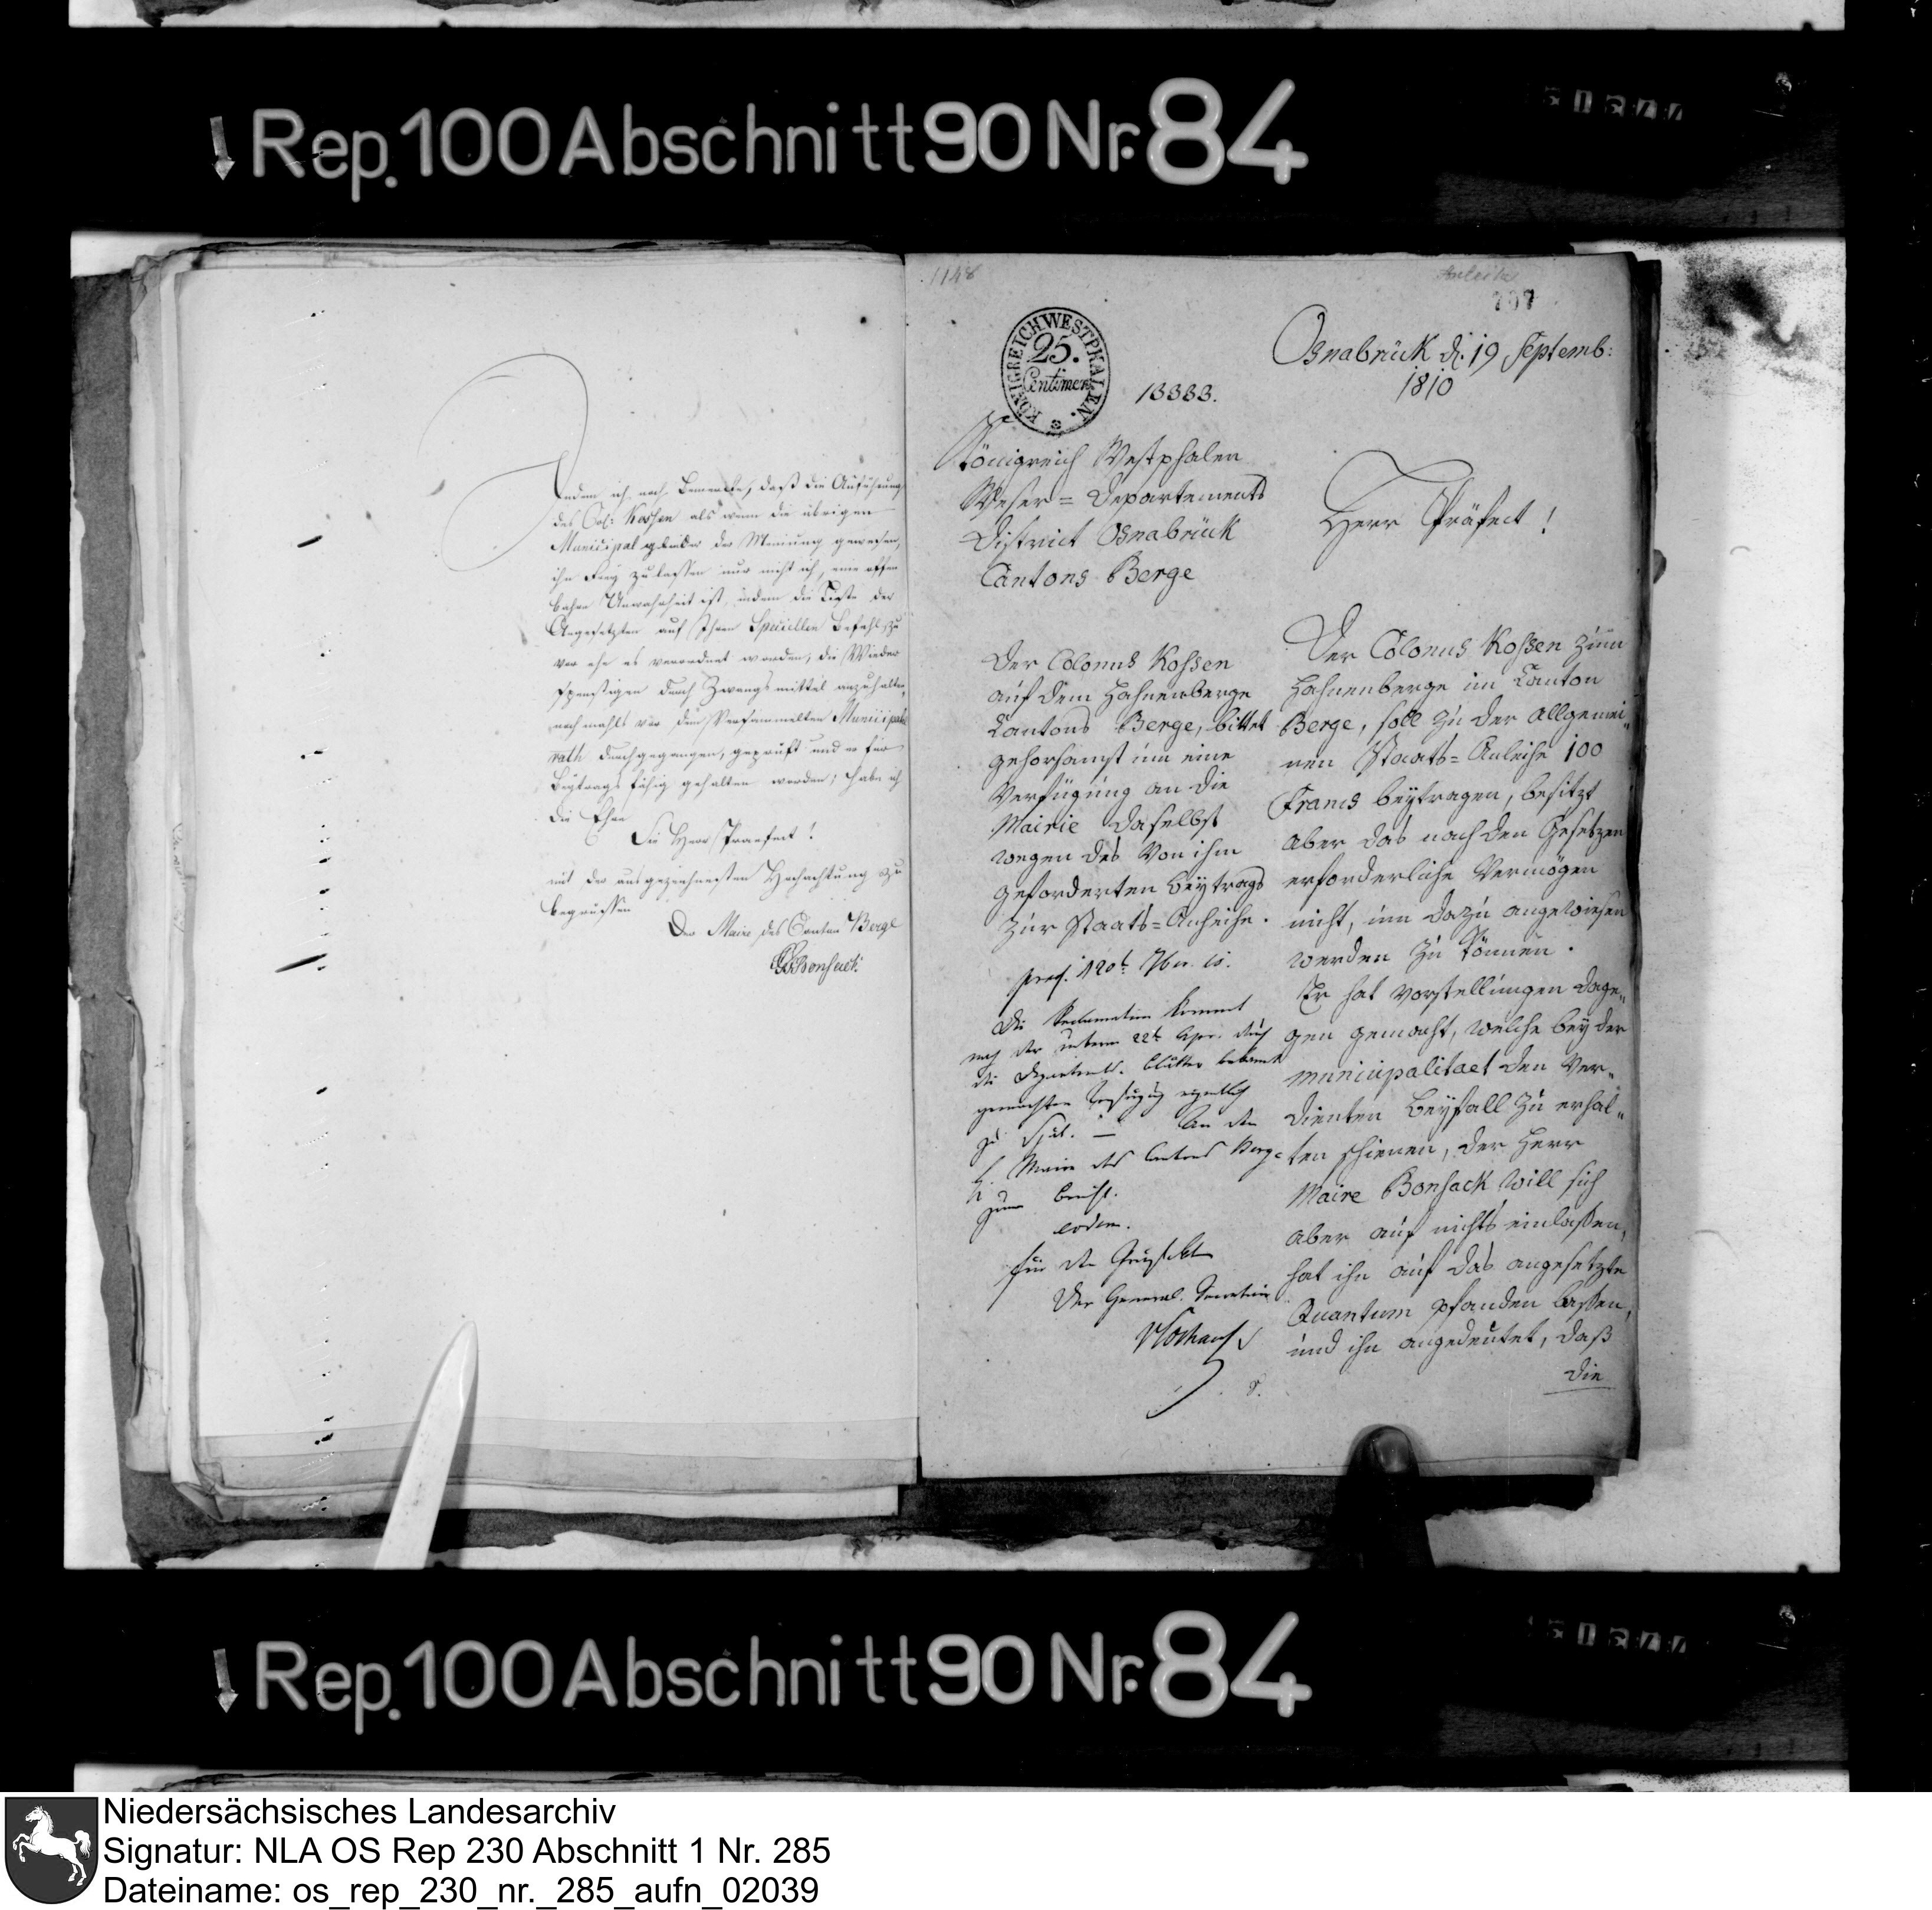 Rep. 100 Abschnitt 90 Nr. 84
Indem ich noch bemerke, daß die Anführung
des Col: Kossen als wenn die übrigen
Municipal glieder der Meinung gewesen,
ihn Frey zu lassen nur nicht ich, eine offen
bahre Unwahrheit ist, indem die Liste der
Angesetzten auf Ihren Speciellen Befehl zu
vor ehe es verordnet worden, die Wieder
spenstigen durch Zwangsmittel anzuhalten,
nochmahls vor dem Versammelten Municipal
rath durchgegangen, geprüft und er für
Beytrags fähig gehalten worden; habe ich
die Ehre
Sie Herr Praefect!
mit der ausgezeichnesten Hochachtung zu
begrüssen
Der Maire des Canton Berge
Bonsack
1148
Anleihe
707
KÖNIGREICH WESTPHALEN.
25.
Centimen
13383.
Osnabrück d. 19 Septemb:
1810
Königreich Westphalen
Weser=Departements
District Osnabrück
Cantons Berge
Herr Präfect!
Der Colonus Kossen
auf dem Hahnenberge
Cantons Berge, bittet
gehorsamst um eine
Verfügung an die
Mairie daselbst
wegen des von ihm
geforderten Beytrags
zur Staats=Anleihe.
Die Reclamation kommt
nach der unterm 22t
die Departemts. blätter bekannt
gemachten Verfügung eigentlich
zu spät. — An den
H. Maire des Cantons Berge
zum Bericht.
eodem.
für den Präfekten
Der General. Secretair
Der Colonus Kossen zum
Hahnenberge im Canton
Berge, soll zu der allgemei„
nen Staats=Anleihe 100
Francs beytragen, besitzt
aber das nach den Gesetzen
erforderliche Vermögen
nicht, um dazu angewiesen
werden zu können.
Er hat Vorstellungen dage„
gen gemacht, welche bey der
Municipalitaet den Ver„
dienten Beyfall zu erhal„
ten schienen, der Herr
Maire Bonsack will sich
aber auf nichts einlaßen,
hat ihn auf das angesetzte
Quantum pfanden laßen,
und ihn angedeutet, daß
die
Rep. 100 Abschnitt 90 Nr. 84
Niedersächsisches Landesarchiv
Signatur: NLA OS Rep 230 Abschnitt 1 Nr. 285
Dateiname: os_rep_230_nr._285_aufn_02039